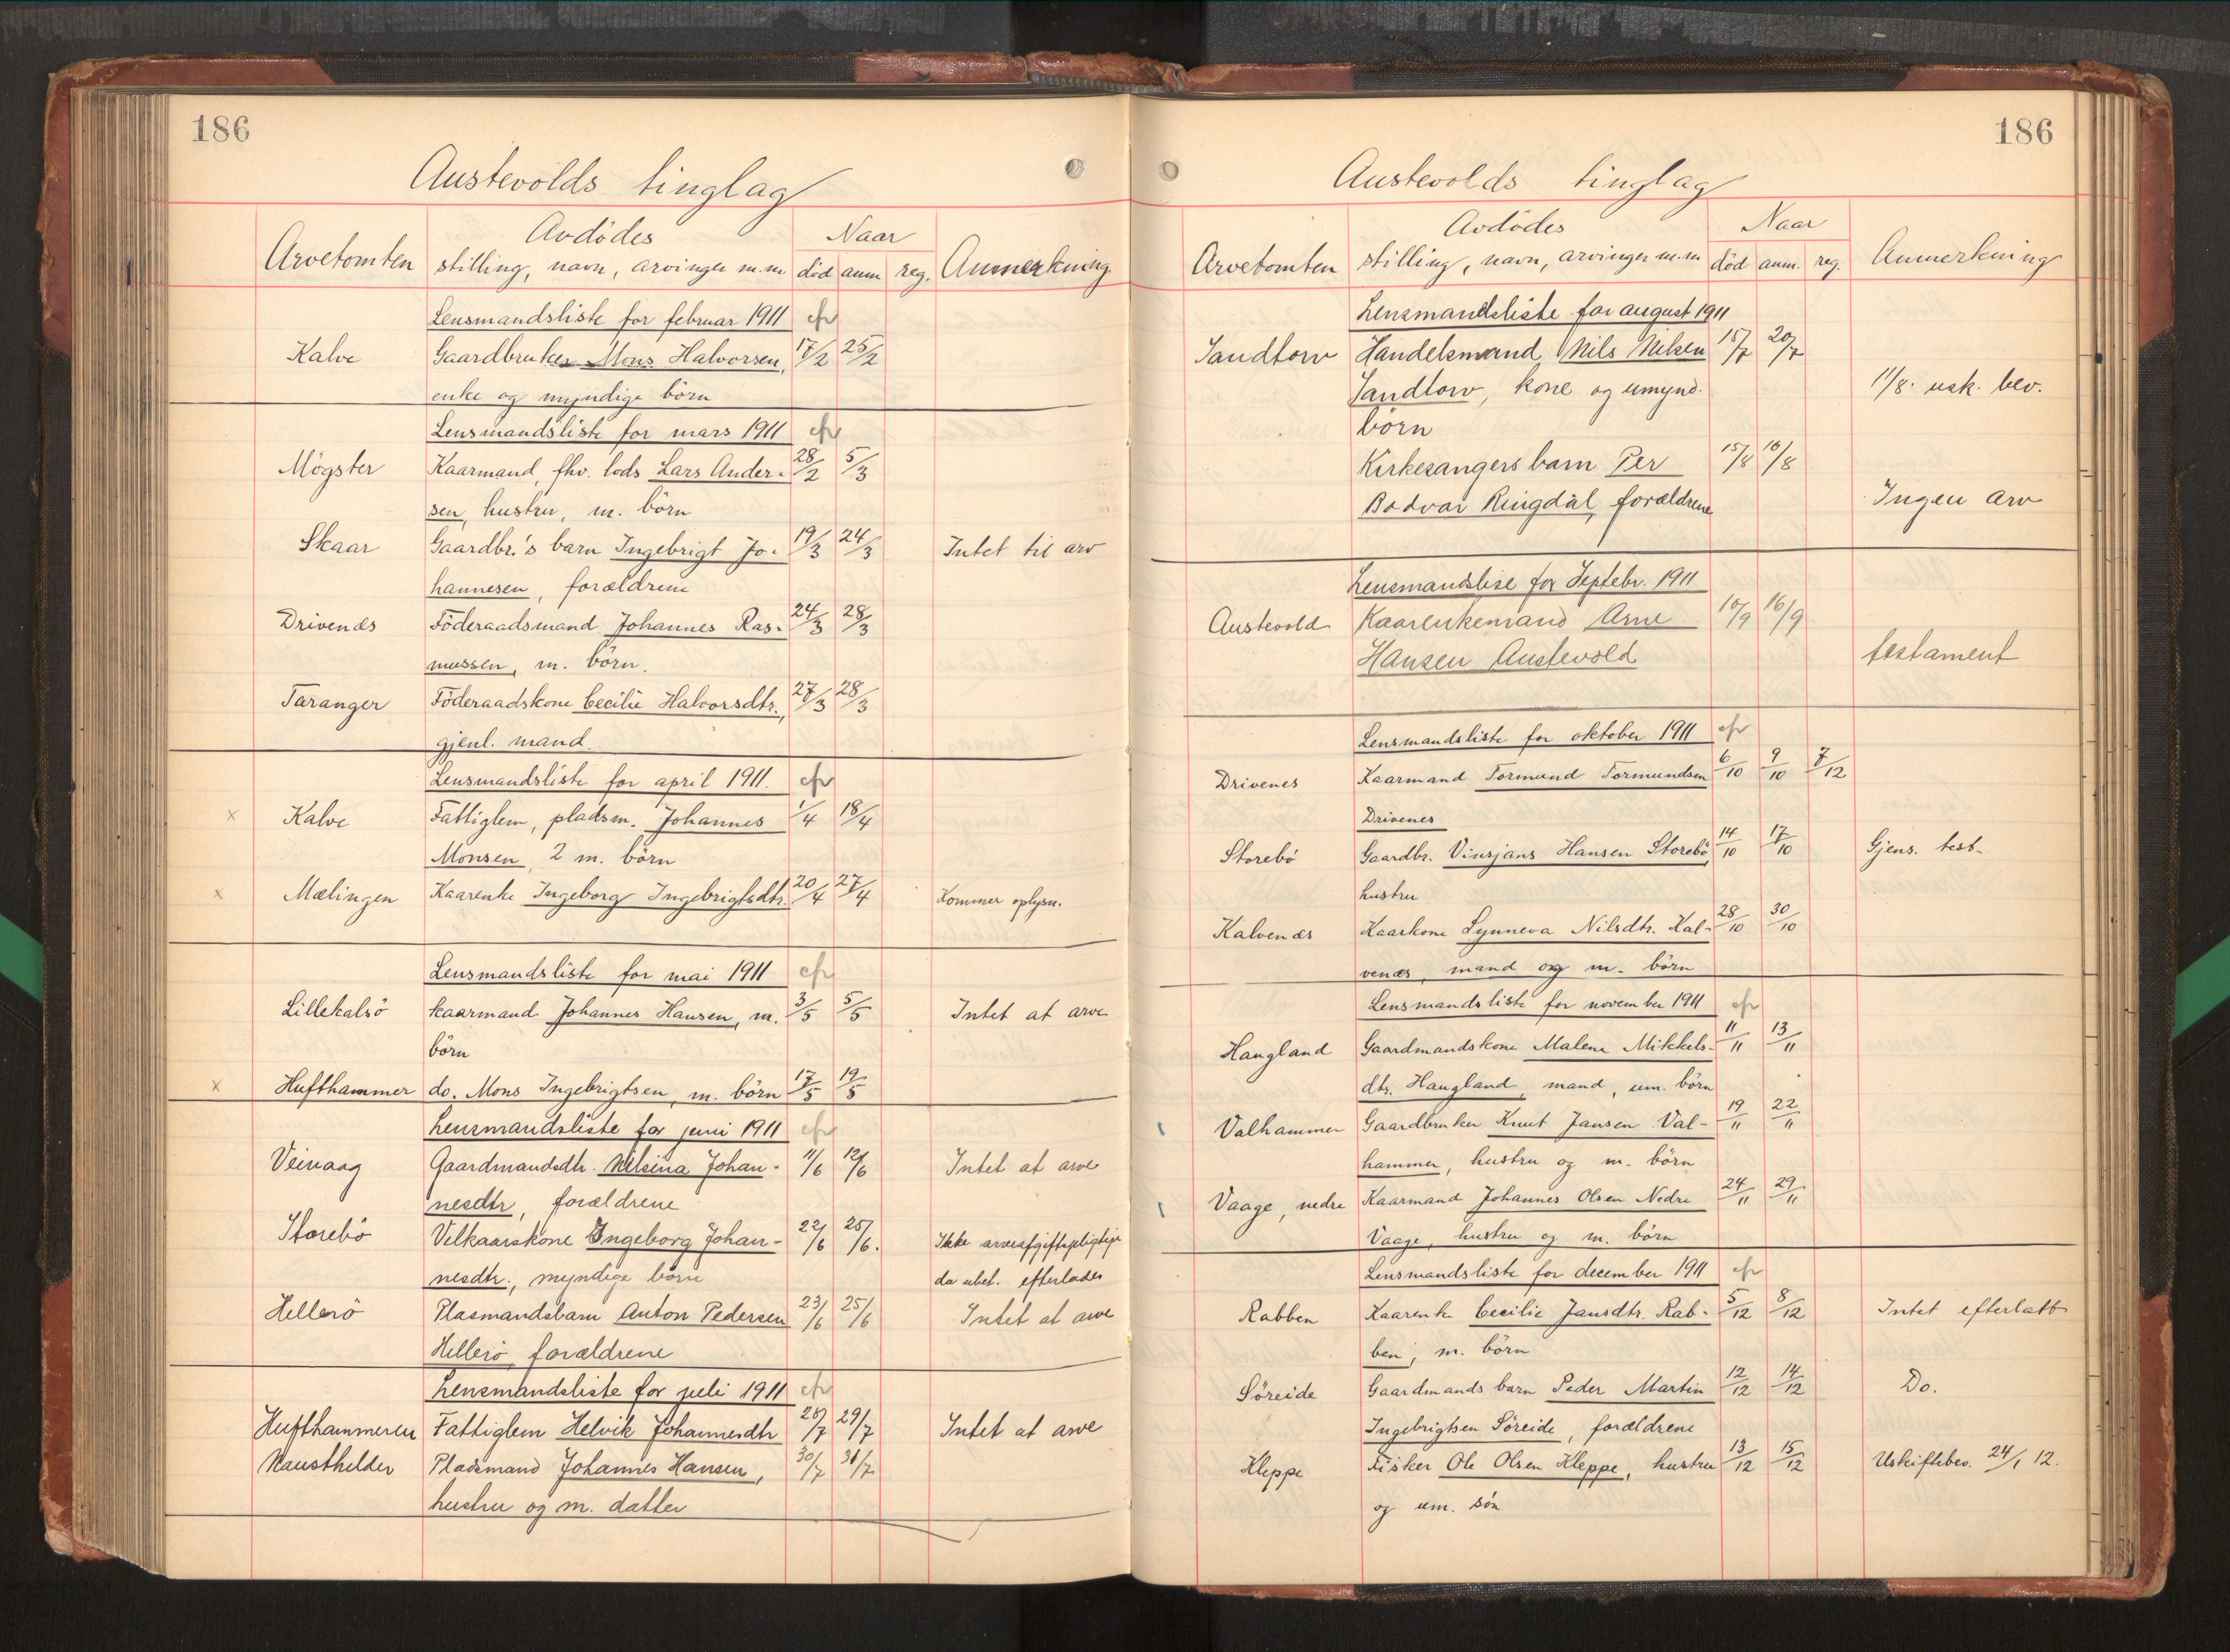 186
Austevolds tinglag
Arvetomten Avdödes stilling, navn, arvinger m.m Naar död anm reg. Anmerkning
Lensmandsliste for februar 1911 efr
Kalve Gaardbruker Mons Halvorsen, 17/2 25/2
enke og myndige börn
Lensmandsliste for mars 1911 efr
Mögster Kaarmand, fhv. lods Lars Ander- 28/2 5/3
sen, hustru, m. börn
Skaar Gaardbr.'s barn Ingebrigt Jo- 19/3 24/3 Intet til arv
hannesen, forældrene
Drivenæs Föderaadsmand Johannes Ras- 24/3 28/3
mussen, m. börn.
Taranger Föderaadskone Cecilie Halvorsdtr., 27/3 28/3
gjenl. mand.
Lensmandsliste for april 1911. efr
x Kalve Fattiglem, pladsm. Johannes 1/4 18/4
Monsen, 2 m. börn
x Mælingen Kaarenke Ingeborg Ingebrigtsdtr. 20/4 27/4 Kommer oplysn.
Lensmandsliste for mai 1911 efr
Lillekalsö kaarmand Johannes Hansen, m. 3/5 5/5 Intet at arve
börn
x Hufthammer do. Mons Ingebrigtsen, m. börn 17/5 19/5
Lensmandsliste for juni 1911 efr
Veivaag Gaardmandsdtr. Nilsina Johan- 11/6 12/6 Intet at arve
nesdtr, forældrene
Storebö Velkaarskone Ingeborg Johan- 22/6 25/6. Ikke arveafgiftspligtige
nesdtr., myndige börn da ubet. efterlades
Hellesö Plasmandsbarn Anton Pedersen 23/6 25/6 Intet at arve
Hellesö, forældrene
Lensmandsliste for juli 1911 efr
Hufthammeren Fattiglem Helvik Johannesdtr 28/7 29/7 Intet at arve
Nausthelder Pladsmand Johannes Hansen, 30/7 31/7
hustru og m. datter
186
Austevolds tinglag
Arvetomten Avdödes stilling, navn, arvinger m.m Naar död anm. reg. Anmerkning
Lensmandsliste for august 1911
Sandtorv Handelsmand Nils Nilsen 15/7 20/7
Sandtorv, kone og umynd. 11/8. usk. bev.
börn
Kirkesangers barn Per 15/8 16/8
Bodvar Ringdal, forældrene Ingen arv
Lensmandslise for Septebr. 1911
Austevold Kaarenkemand Arne 10/9 16/9
Hansen Austevold testament
Lensmandsliste for oktober 1911 efr
Drivenes Kaarmand Tormund Tormundsen 6/10 9/10 7/12
Drivenes
Storebö Gaardbr. Vinsjans Hansen Storebö, 14/10 17/10 Gjens. test.
hustru
Kalvenæs Kaarkone Synneva Nilsdtr. Kal- 28/10 30/10
venæs, mand og m. börn
Lensmandsliste for november 1911 efr
Haugland Gaardmandskone Malene Mikkels- 11/11 13/11
dtr. Haugland, mand, um. börn
Valhammer Gaardbruker Knut Jansen Val- 19/11 22/11
hammer, hustru og m. börn
Vaage, nedre Kaarmand Johannes Olsen Nedre 24/11 29/11
Vaage, hustru og m. börn
Lensmandsliste for december 1911 efr
Rabben Kaarenke Cecilie Jansdtr. Rab- 5/12 8/12 Intet efterlatt
ben, m. börn
Söreide Gaardmands barn Peder Martin 12/12 14/12 Do.
Ingebrigtsen Söreide, forældrene
Kleppe Fisker Ole Olsen Kleppe, hustru 13/12 15/12 Uskiftebev. 24/1 12.
og um. sön